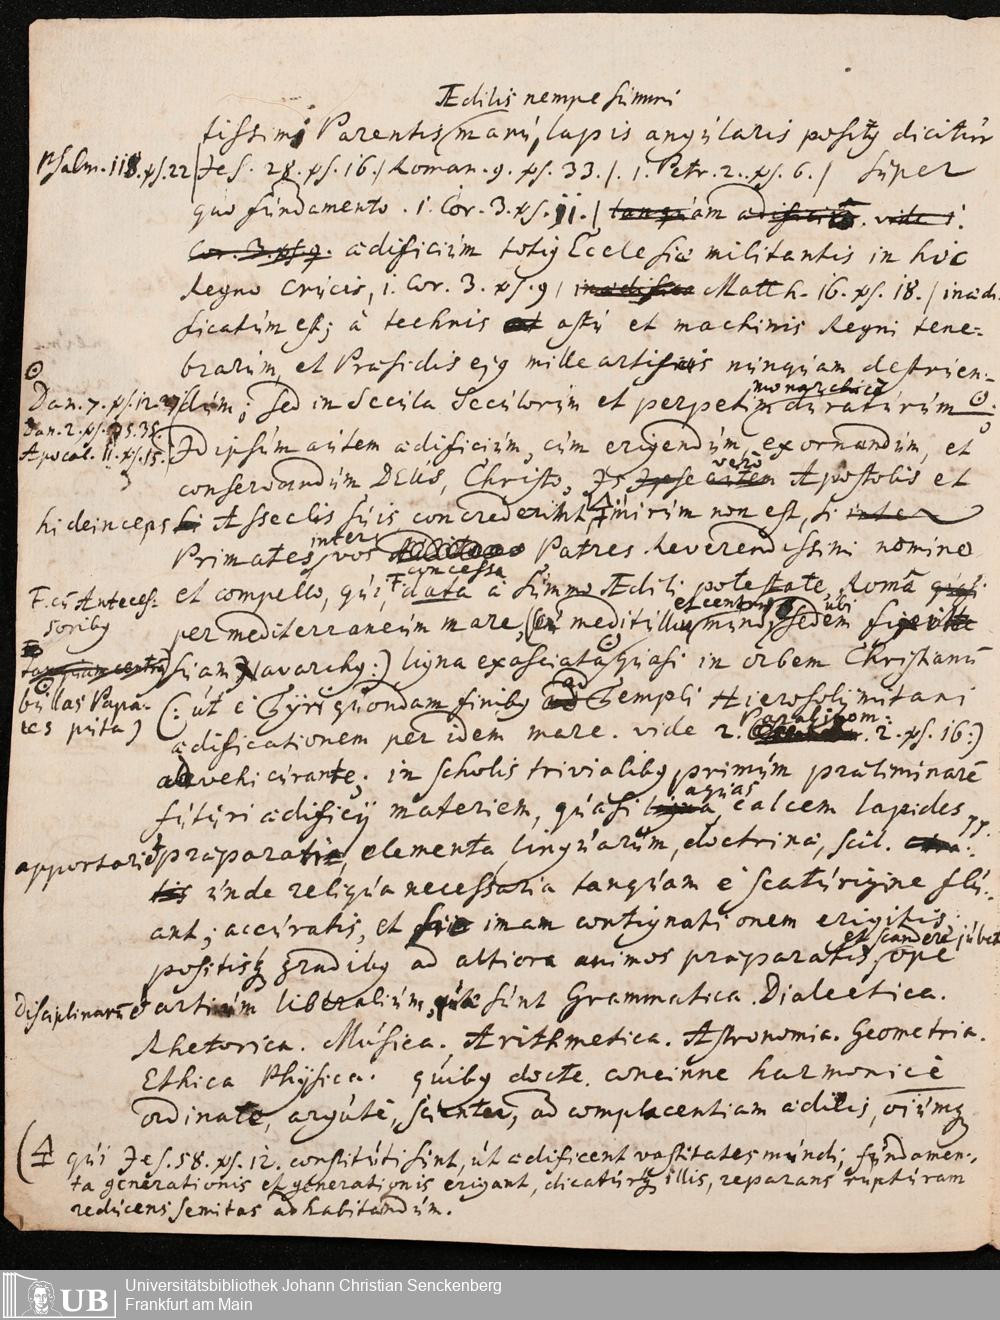 Ædilis nempe summi
tissimi Parentis manu, lapis angularis positq dicitur
Psalm. 118. ps. 22
Jes. 28. ps. 16. / Roman. 9. ps. 33. /. 1. Petr. 2. ps. 6. / super
quo fundamento. 1. Cor. 3. ps. 11. / tanquam ædificiū. vide 1.
Cor. 3. ps. 9. ædificium totiq Ecclesiæ militantis in hoc
Regno Crucis, 1. Cor. 3. ps. 9 / Matth. 16. ps. 18. / inædi-
ficatum est; à technis et astu et machinis Regni tene-
brarum, et Præsidis ejq mille nunquam destruen-
Dan. 7. ps. 12. 27
Dan. 2. ps. 35.
Apocal. 11. ps. 15.
dum; sed in secula seculorum et perpetim duraturum
monarchica
Id ipsum autem ædificium, cum erigendum, exornandum, et
conservandum DEUS, Christq, Is Ipse autem vero Apostolis et
hi deinceps
hi Asseclis suis concrederint mirum non est, si inter
Primates, inter vos Patres Reverendissimi nomino
et compello, qui, data concessa à summo Ædili potestate, Româ quasi
F. cū Anteces-
soribq
per mediterraneum mare, (seu meditullium et centrum mundi sedem ubi
tanquam centro
suam Navarchq:) ligna exasciata quasi in orbem Christianū
bullas Papa-
les puta)
(: ut è Tyri quondam finibq ad Templi Hierosolymitani
ædificationem per idem mare. vide 2. Paralipom. 2. ps. 16:)
advehi curante; in scholis trivialibq primum præliminarē
futuri ædificij materiem, quasi ligna, aquas, calcem lapides
apportari
præparatis, elementa linguarum, doctrinæ, scil.
unde reliqua necessaria tanquam è scaturigine flu-
ant; accuratis, et imam contignationem erigitis;
positisq gradibq ad altiora animos præparatis, et scandere jubet ope
Disciplinarū
artium liberalium, quæ sunt Grammatica. Dialectica.
Rhetorica. Musica. Arithmetica. Astronomia. Geometria.
Ethica Physica. quibq docte, concinne harmonicè
ordinate, argutè, scienter, ad complacentiam ædilis, oiumq
qui Jes. 58. ps. 12. constituti sint, ut ædificent vastitates mundi, fundamen-
ta generationis et generationis erigant, dicaturq illis, reparans rupturam
reducens semitas ad habitandum.
UB
Universitätsbibliothek Johann Christian Senckenberg
Frankfurt am Main